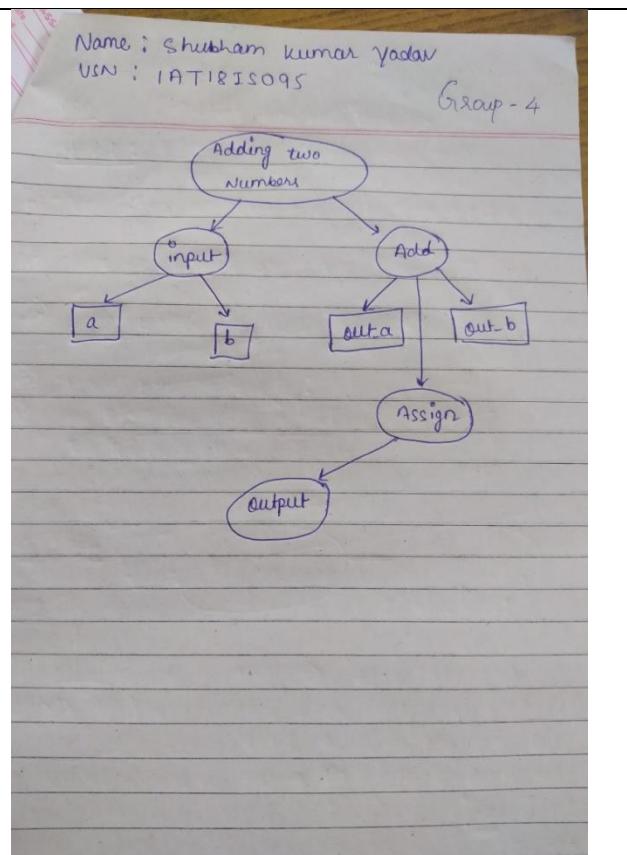 Name : Shubham Kumar Yadav
USN : 1AT18IS095
Group - 4
Adding two
Numbers
input
Add
a
b
out_a
out_b
Assign
output